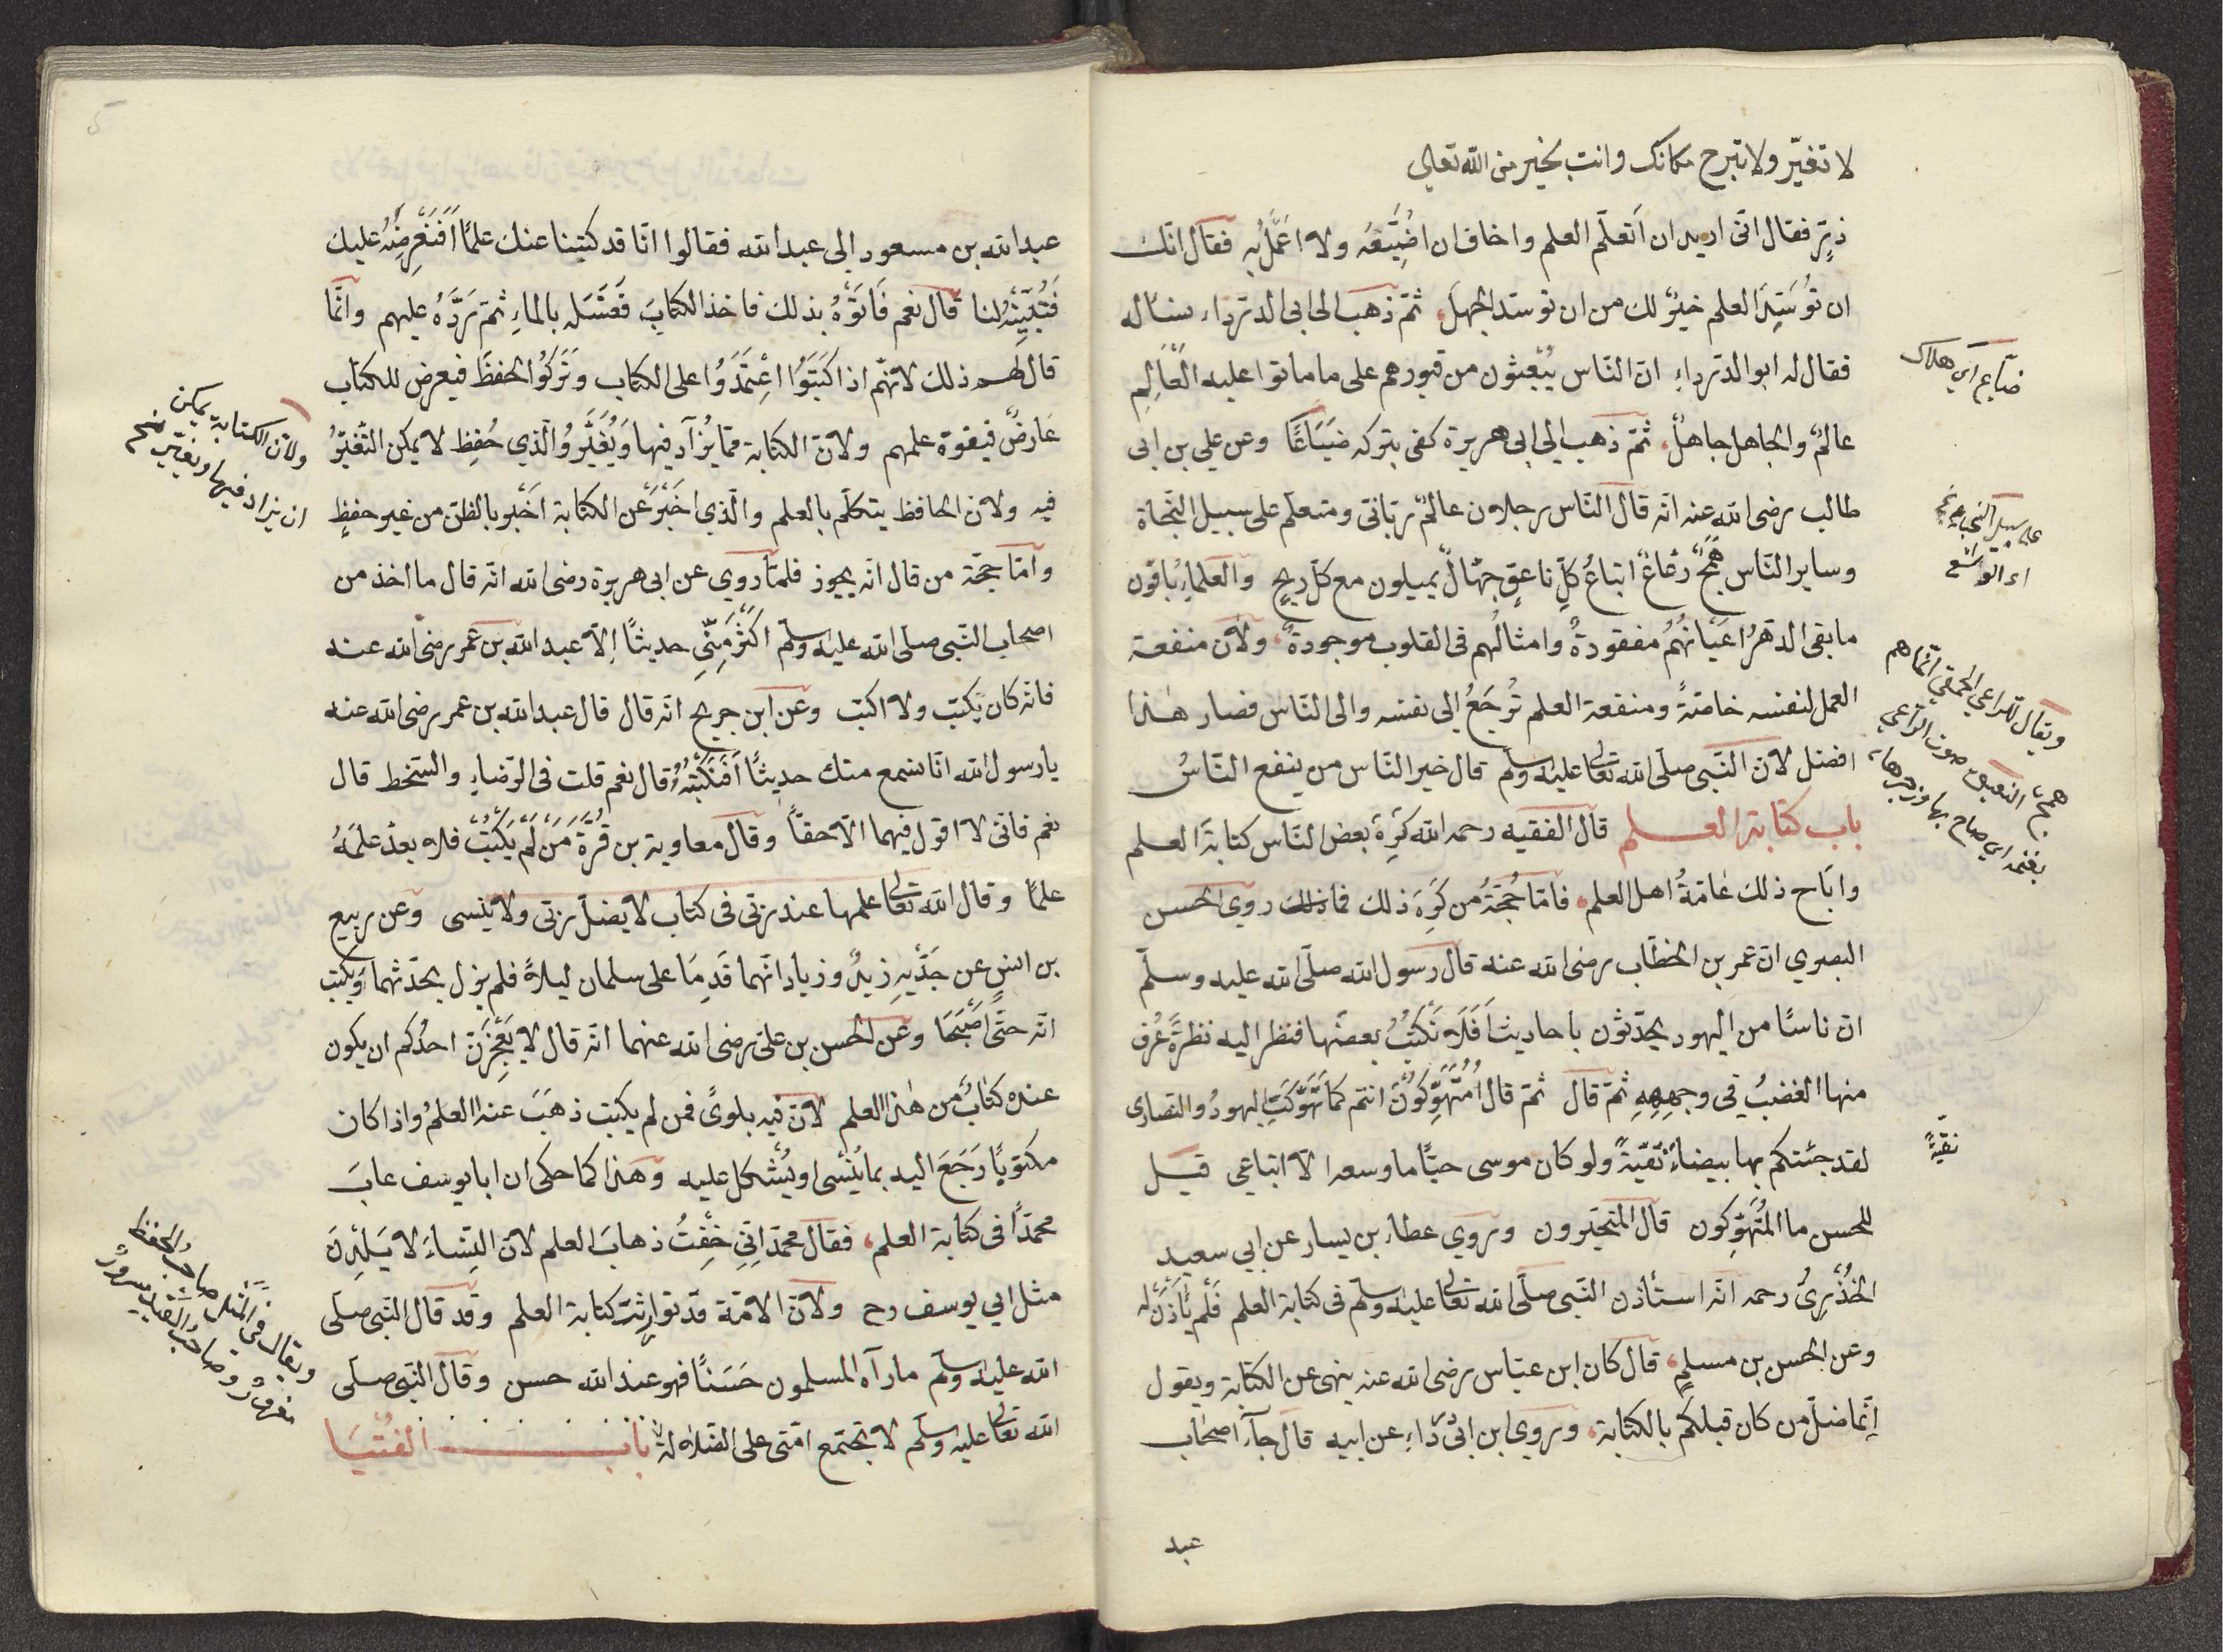 لا تغيّر ولا تبرح مكانك وانت بخير من الله تعالى
ذرّ فقال انّى اريد ان اَتعلّم العلم واخاف ان اضُيّعَه ولا اعمَلُ به فقال انّك
ان تُوَسّد العلم خيرٌ لك من ان توسّد الجهلَ ثمّ ذهب الى ابى الدرداء سئاله
فقال له ابو الدرداءِ انّ النّاس يُبْعثون من قبورهم على ما ماتوا عليه الْعَالِم
عالمٌ والجاهل جاهلٌ ثمّ ذهب الى ابى هريرة كفى بتركه ضَيَاعًا وعن علي بن ابى
طالب رضى الله عنه انّه قال النّاس رجلان عالمٌ ربّانّى ومتعلّم على سبيل النّجاة
وساير النّاس هَمَجٌ رعَاعٌ اتباعُ كلّ ناعقٍ جهّالٌ يميلون مع كلّ ريحٍ والعلماءِ باقون
ما بقى الدهرُ اعَيانهُمُ مفقودةٌ وامثالُهم فى القلوب موجودةٌ ولانّ منفعة
العمل لنفسه خاصّةً ومنفعة العلم تُرجَعُ الى نفسه والى النّاس فصار هذا
افضل لانّ النّبى صلّى الله تعالى عليه وسلّم قال خير النّاس من ينفع النّاسُ
باب كتابة العلم قال الفقيه رحمه الله كَرِهَ بعض النّاس كتابةَ العلم
واَباح ذلك عامّةُ اهل العلم فامّا حُجّةُ من كَرِهَ ذلك فما روى الحسن
البصري انّ عمر بن الخطّاب رضى الله عنه قال رسول الله صلّى الله عليه وسلّم
انّ ناسًا من اليهود يحدّثون باحاديث اَفَلَا نَكْتُبُ بعضَها فنظر اليه نظرةً عُرف
منها الغضبُ في وجهِهِ ثمّ قال ثمّ قال اُمُتَهَوِّكُونَ انتم كما تَهَوَّكَتِ اليهودُ والنصارى
لقد جئتكم بها بيضاءَ نَقيّةً ولو كان موسى حيًّا ما وسعه الّا اتباعي قيل
للحسن ما المُتَهوِّكون قال المتحيّرون وروي عطاء بن يسار عن ابي سعيد
الخُدْرىُّ رحمه انّه استأذن النّبى صلّى الله تعالى عليه وسلّم فى كتابة العلم فَلَم يَأْذَنْ له
وعن الحسن بن مسلمٍ قال كان ابن عبّاس رضى الله عنه ينهى عن الكتابة ويقول
اِنّما ضلّ من كان قبلكم بالكتابة وروى ابن ابىْ عن ابيه قال جآء اصحاب
عبد
ضيَاع اي هلاك
على سبيل النّجاة
ويقال للراعي الحمقى انّما هم
همج النعيق صوت الراعي
بغنمه اي صاح بها وزجرها
نقيّةً
عبد الله بن مسعود الى عبد الله فقالوا انّا قد كتبنا عنك علمًا اَفَنَعْرِضُهُ عليك
فَتُبَيِّنهُ لنا قال نعم فَأتَوْهُ بذلك فاخذ الكتابَ فَغَسَله بالماءِ ثمّ رَدَّهُ عليهم وانّما
قال لهم ذلك لانّهم اذا كَتَبَوُا اعْتَمَدَوُا على الكتاب وَتَرَكوُا الحفظَ فيعرض للكتاب
عَارضٌ فيفوة علمهم ولانّ الكتابة ممّا يُزآد فيها وَيُغَيَّرُ والّذي حُفِظ لا يمكن التّغيّرُ
فيه ولانّ الحافظ يتكلّم بالعلم والّذي اخَبْرَ عَن الكتابة اَخَبْر بالظنّ من غير حفظٍ
وامّا حجّة من قال انّه يجوز فلمّا روي عن ابى هريرة رضى الله انّه قال ما اخذ من
اصحاب النّبى صلّى الله عليه وسلّم اكَثرَ مِنّى حديثًا اِلّا عبد الله بن عمر رضى الله عنه
فانّه كان يكتب ولا اكتب وعن ابن جريج انّه قال قال عبد الله بن عمر رضى الله عنه
يا رسول الله انّا نسمع منك حديثًا اَفَنَكتُبُهُ قال نعم قلت فى الرّضاءِ والسّخط قال
نعم فانّى لا اقول فيهما الّا حقًّا وقال معاوية بن قُرَّةَ مَنْ لَمْ يَكْتُبْ فلا يعدّ علمَهُ
علمًا وقال الله تعالى علمها عند ربّى فى كتاب لا يضلّ ربّى ولا ينسى وعن ربيع
بن انسٍ عن جدّيهِ زيدٌ وزياد انّهما قَدِمَا على سلمان ليلاً فلم يزل يحدّثهما ويكتب
انّه حتّى اَصْبَحَا وعن الحسن بن على رضى الله عنهما انّه قال لا يَعْجِزَنّ احدُكم ان يكون
عنده كتابٌ من هذا العلم لانّ فيه بلوىً فمن لم يكتب ذهَبَ عنه العلمُ واذا كان
مكتوبًا رَجَعَ اليه بما يُنْسى او يُشْكل عليه وهذا كما حكى ان ابا يوسف عابَ
محمّدًا فى كتابة العلم فقال محمّد اِنّى خِفْتُ ذهابَ العلم لانّ النِّساءَ لا يَلِدْنَ
مثل ابي يوسف رح ولانّ الامّة قد توارثت كتابة العلم وقد قال النّبى صلّى
الله عليه وسلّم ما رآه المسلمون حَسَنًا فهو عند الله حسن وقال النّبى صلّى
الله تعالى عليه وسلّم لا تجتمع امّتى على الضّلالة باب الفُتْيَا
ولانّ الكتابة يمكن
ان يزاد فيها ويغيّر
ويقال فى المثل صاحب الحفظ
وصاحب القيد مسرورٌ